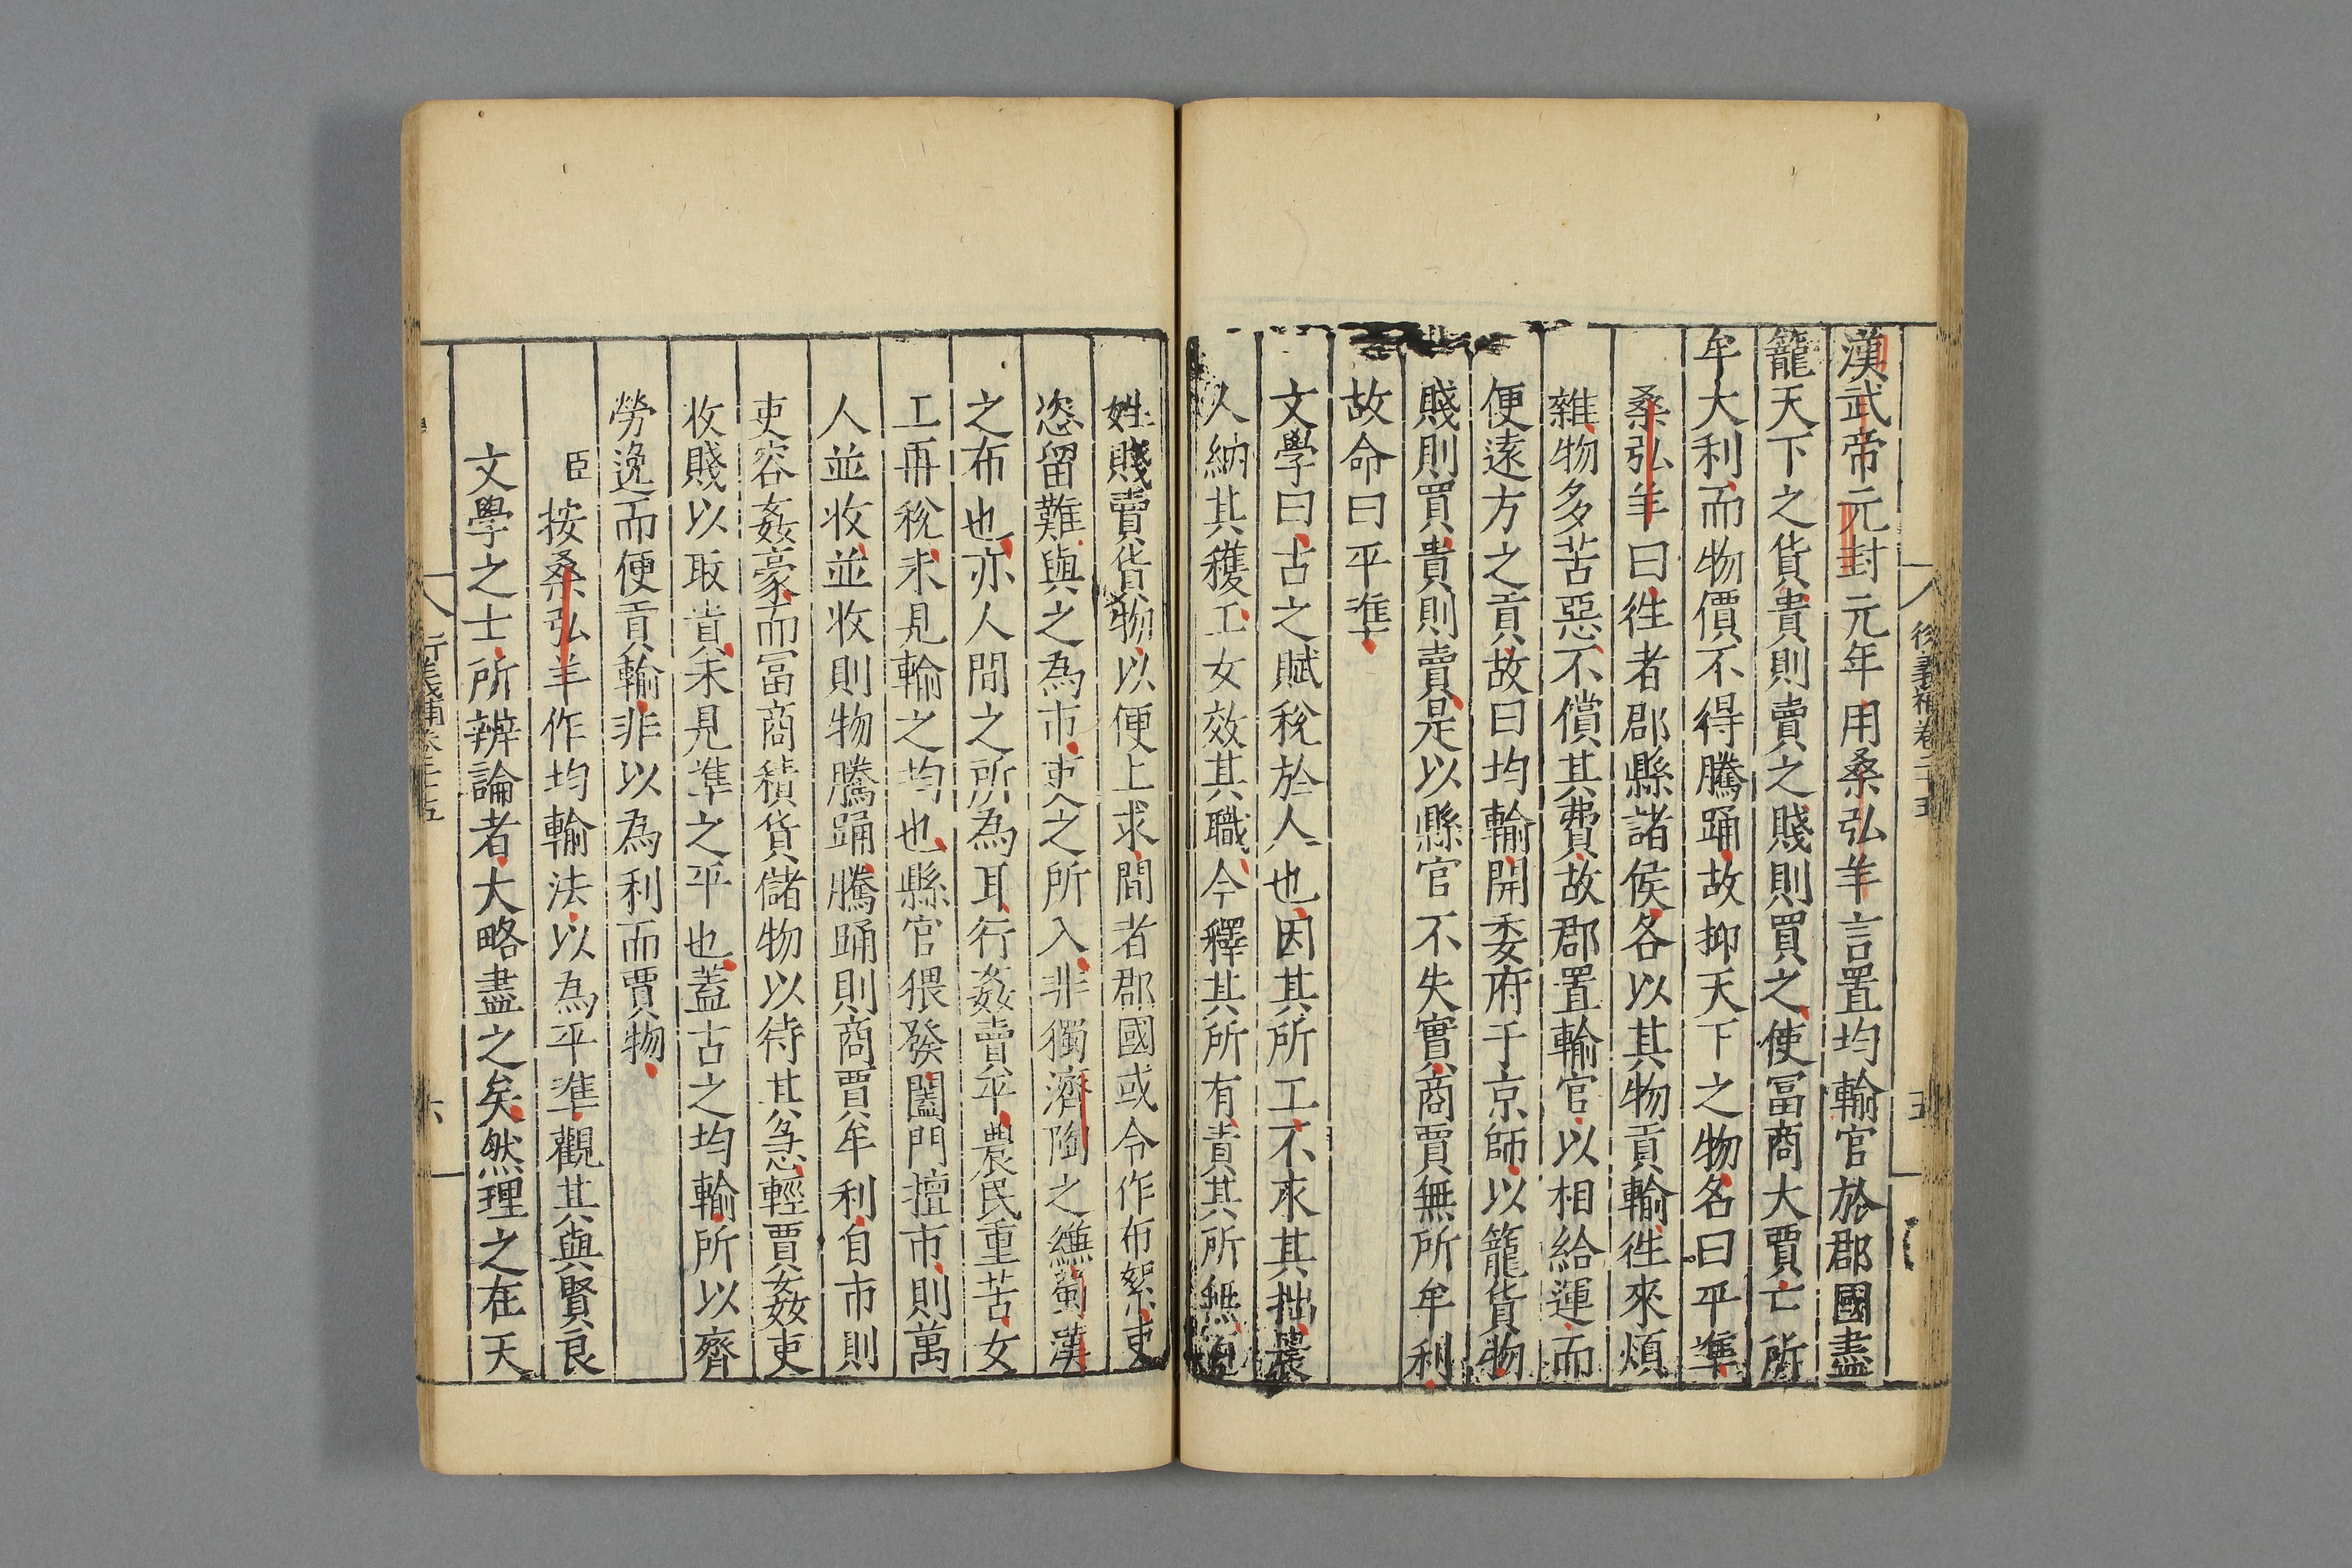 漢武帝元封元年用桑弘羊言置均輸官於郡國盡
籠天下之貨貴則賣之賤則買之使冨商大賈亡所
牟大利而物價不得騰踊故抑天下之物名曰平準
桑弘羊曰徃者郡縣諸侯各以其物貢輸徃來煩
雜物多苦惡不償其費故郡置輸官以相給運而
便遠方之貢故曰均輸開委府于京師以籠貨物
賤則買貴則賣是以縣官不失實商賈無所牟利
故命曰平準
文學曰古之賦稅於人也因其所工不求其拙農
人納其穫工女效其職今釋其所有責其所無
姓賤賣貨物以便上求間者郡國或令作布絮吏
恣留難與之為市吏之所入非獨濟陶之縑蜀漢
之布也亦人間之所為耳行姦賣平農民重苦女
工再稅未見輸之均也縣官猥發闔門擅市則萬
人並收並收則物騰踊騰踊則商賈牟利自市則
吏容姦豪而冨商積貨儲物以待其急輕賈姦吏
收賤以取貴未見準之平也蓋古之均輸所以齊
勞逸而便貢輸非以為利而賈物
臣按桑弘羊作均輸法以為平準觀其與賢良
文學之士所辨論者大略盡之矣然理之在天
衍義補卷二十五
五
六